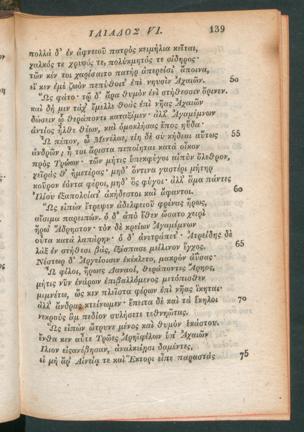 ΙΛΙΑΔΟΣ VI. 139
πολλὰ δ' ἐν ἀφνειοῦ πατρὸς κειμήλια κεῖται,
χαλκός τε χρυσός τε, πολύκμητός τε σίδηρος·
τῶν κέν τοι χαρίσαιτο πατὴρ ἀπερείσι' ἄποινα,
εἴ κεν ἐμὲ ζωὸν πεπύθοιτ' ἐπὶ νηυσὶν Ἀχαιῶν. 50
Ὣς φάτο· τῷ δ' ἄρα θυμὸν ἐνὶ στήθεσσιν ὄρινεν.
καὶ δή μιν τάχ' ἔμελλε θοὰς ἐπὶ νῆας Ἀχαιῶν
δώσειν ᾧ θεράποντι καταξέμεν· ἀλλ' Ἀγαμέμνων
ἀντίος ἦλθε θέων, καὶ ὁμοκλήσας ἔπος ηὔδα·
Ὦ πέπον, ὦ Μενέλαε, τίη δὲ σὺ κήδεαι αὕτως 55
ἀνδρῶν; ἦ σοὶ ἄριστα πεποίηται κατὰ οἶκον
πρὸς Τρώων· τῶν μήτις ὑπεκφύγοι αἰπὺν ὄλεθρον,
χεῖράς θ' ἡμετέρας· μηδ' ὅντινα γαστέρι μήτηρ
κοῦρον ἐόντα φέροι, μηδ' ὃς φύγοι· ἀλλ' ἅμα πάντες
Ἰλίου ἐξαπολοίατ' ἀκήδεστοι καὶ ἄφαντοι. 60
Ὣς εἰπὼν ἔτρεψεν ἀδελφειοῦ φρένας ἥρως,
αἴσιμα παρειπών. ὁ δ' ἀπὸ ἕθεν ὤσατο χειρὶ
ἥρω' Ἄδρηστον· τὸν δὲ κρείων Ἀγαμέμνων
οὖτα κατὰ λαπάρην· ὁ δ' ἀνετράπετ'· Ἀτρείδης δὲ
λὰξ ἐν στήθεσι βὰς, ἐξέσπασε μείλινον ἔγχος. 65
Νέστωρ δ' Ἀργείοισιν ἐκέκλετο, μακρὸν ἀΰσας·
Ὦ φίλοι, ἥρωες Δαναοὶ, θεράποντες Ἄρηος,
μήτις νῦν ἐνάρων ἐπιβαλλόμενος μετόπισθεν
μιμνέτω, ὥς κεν πλεῖστα φέρων ἐπὶ νῆας ἵκηται·
ἀλλ' ἄνδρας κτείνωμεν· ἔπειτα δὲ καὶ τὰ ἕκηλοι 70
νεκροὺς ἂμ πεδίον συλήσετε τεθνηῶτας.
Ὣς εἰπὼν ὤτρυνε μένος καὶ θυμὸν ἑκάστου.
ἔνθα κεν αὖτε Τρῶες Ἀρηϊφίλων ὑπ' Ἀχαιῶν
Ἴλιον εἰσανέβησαν, ἀναλκείῃσι δαμέντες,
εἰ μὴ ἄρ' Αἰνείᾳ τε καὶ Ἕκτορι εἶπε παραστὰς 75